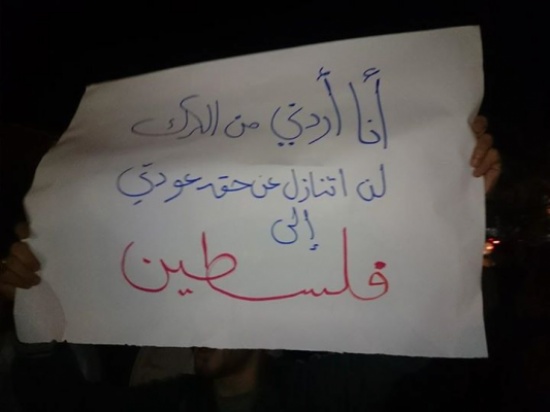 أنا أردني من الكرك
لن اتنازل عن حق عودتي
إلى
فلسطين